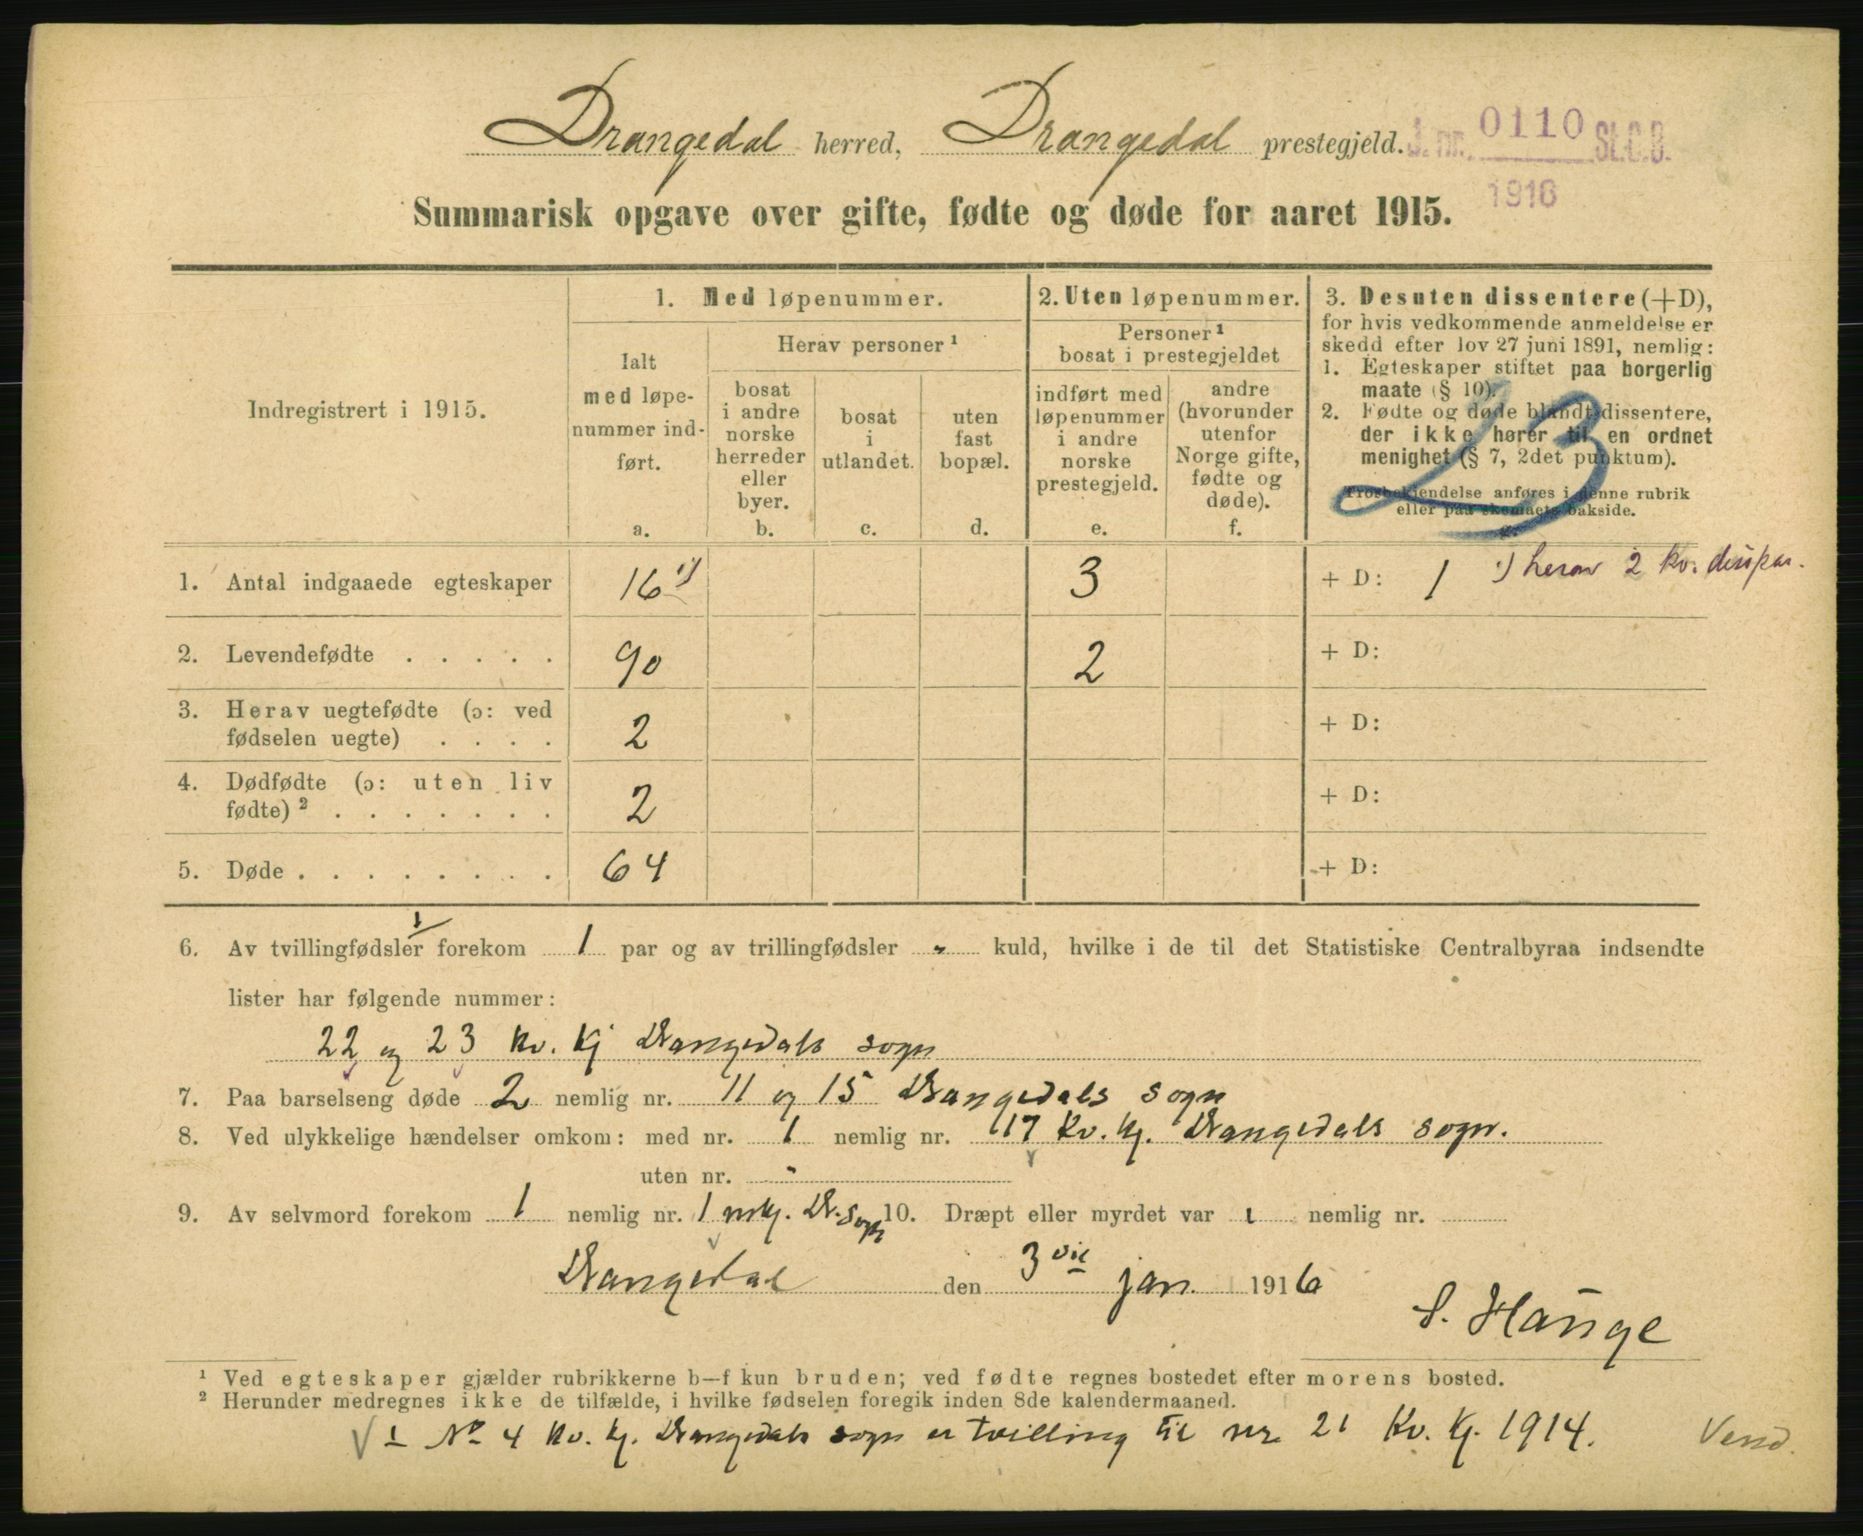 Drangedal herred, Drangedal prestegjeld. J. nr. 0110 St.C.B.
1916
Summarisk opgave over gifte, fødte og døde for aaret 1915.
Indregistrert i 1915.
1. Med løpenummer.
Ialt med løpenummer indført.
a.
Herav personer ¹
bosat i andre norske herreder eller byer.
b.
bosat i utlandet.
c.
uten fast bopæl.
d.
2. Uten løpenummer.
Personer ¹ bosat i prestegjeldet
indført med løpenummer i andre norske prestegjeld.
e.
andre (hvorunder utenfor Norge gifte, fødte og døde).
f.
3. Desuten dissentere (+D),
for hvis vedkommende anmeldelse er
skedd efter lov 27 juni 1891, nemlig:
1. Egteskaper stiftet paa borgerlig
maate (§ 10).
2. Fødte og døde blandt dissentere,
der ikke hører til en ordnet
menighet (§ 7, 2det punktum).
Trosbekjendelse anføres i denne rubrik
eller paa skemaets bakside.
23
1. Antal indgaaede egteskaper 16 ¹) 3 + D: 1 ¹) herav 2 kv. dispar.
2. Levendefødte . . . . . 90 2 + D:
3. Herav uegtefødte (ɔ: ved
fødselen uegte) . . . . 2 + D:
4. Dødfødte (ɔ: uten liv
fødte) ² . . . . . . . 2 + D:
5. Døde . . . . . . . . 64 + D:
6. Av tvillingfødsler 1/ forekom 1 par og av trillingfødsler " kuld, hvilke i de til det Statistiske Centralbyraa indsendte
lister har følgende nummer:
22 og 23 kv. kj Drangedals sogn
7. Paa barselseng døde 2 nemlig nr. 11 og 15 Drangedals sogn
8. Ved ulykkelige hændelser omkom: med nr. 1 nemlig nr. 17 Kv. kj. Drangedals sogn.
uten nr. "
9. Av selvmord forekom 1 nemlig nr. 1 mkj. Dr. sogn 10. Dræpt eller myrdet var ı nemlig nr.
Drangedal den 3die jan. 1916
S. Hauge
¹ Ved egteskaper gjælder rubrikkerne b—f kun bruden; ved fødte regnes bostedet efter morens bosted.
² Herunder medregnes ikke de tilfælde, i hvilke fødselen foregik inden 8de kalendermaaned.
1 No 4 kv. kj. Drangedals sogn er tvilling til nr. 21 Kv. kj. 1914. Vend.